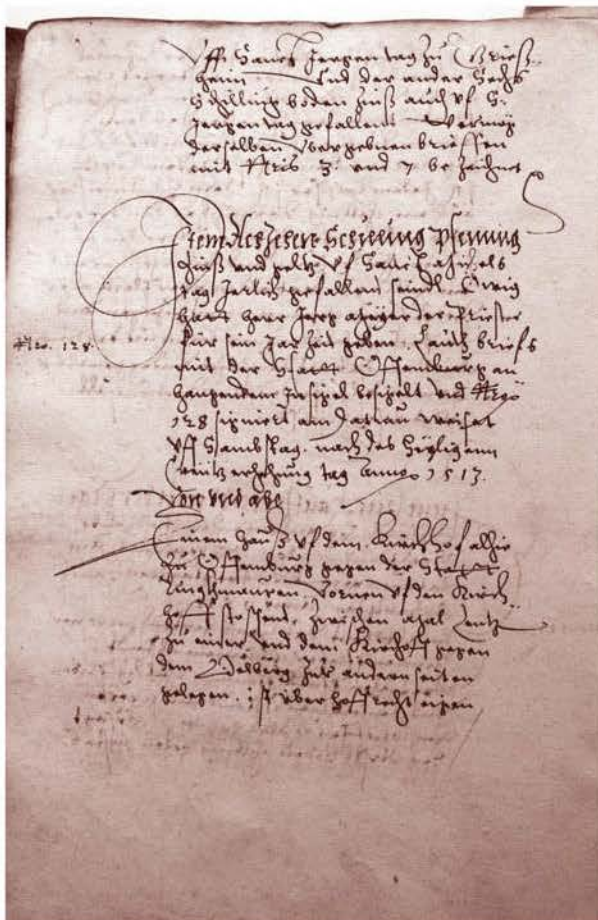 Uff Sanct Jergen tag zu
heim Und der ander Sechs
Schilling boden zinß auch uf S:
Jergen tag gefallent Vermög
derselben ubergebnen brieffen
mit Nris 3: und 7 bezeichnet
Item Schilling Pfenning
Zinß und gelts uf Sanct Michels
tag Jerlich gefallent seindt Ewig
hatt herr Jerg Meyger der Priester
für sein Jar Zeit geben, Lauth briefs
Nro. 128.
mit der Statt Offemburg an
hangendem Insigel besigelt und Nro
128 signiert am Datum weiset
uff Sambstag nach des heyligenn
Creutz erhehung tag Anno 1513.
Von und abe
Einem hauß uf dem Kirchhof alhie
zu Offemburg gegen der Statt
Ringkhmauren, vornen uf den Kirch
hoff stossent, Zwischen
zu einer und dem Kirchoff gegen
dem Oelberg zur anderen seiten
gelegen, ist uber hoffrecht eigen